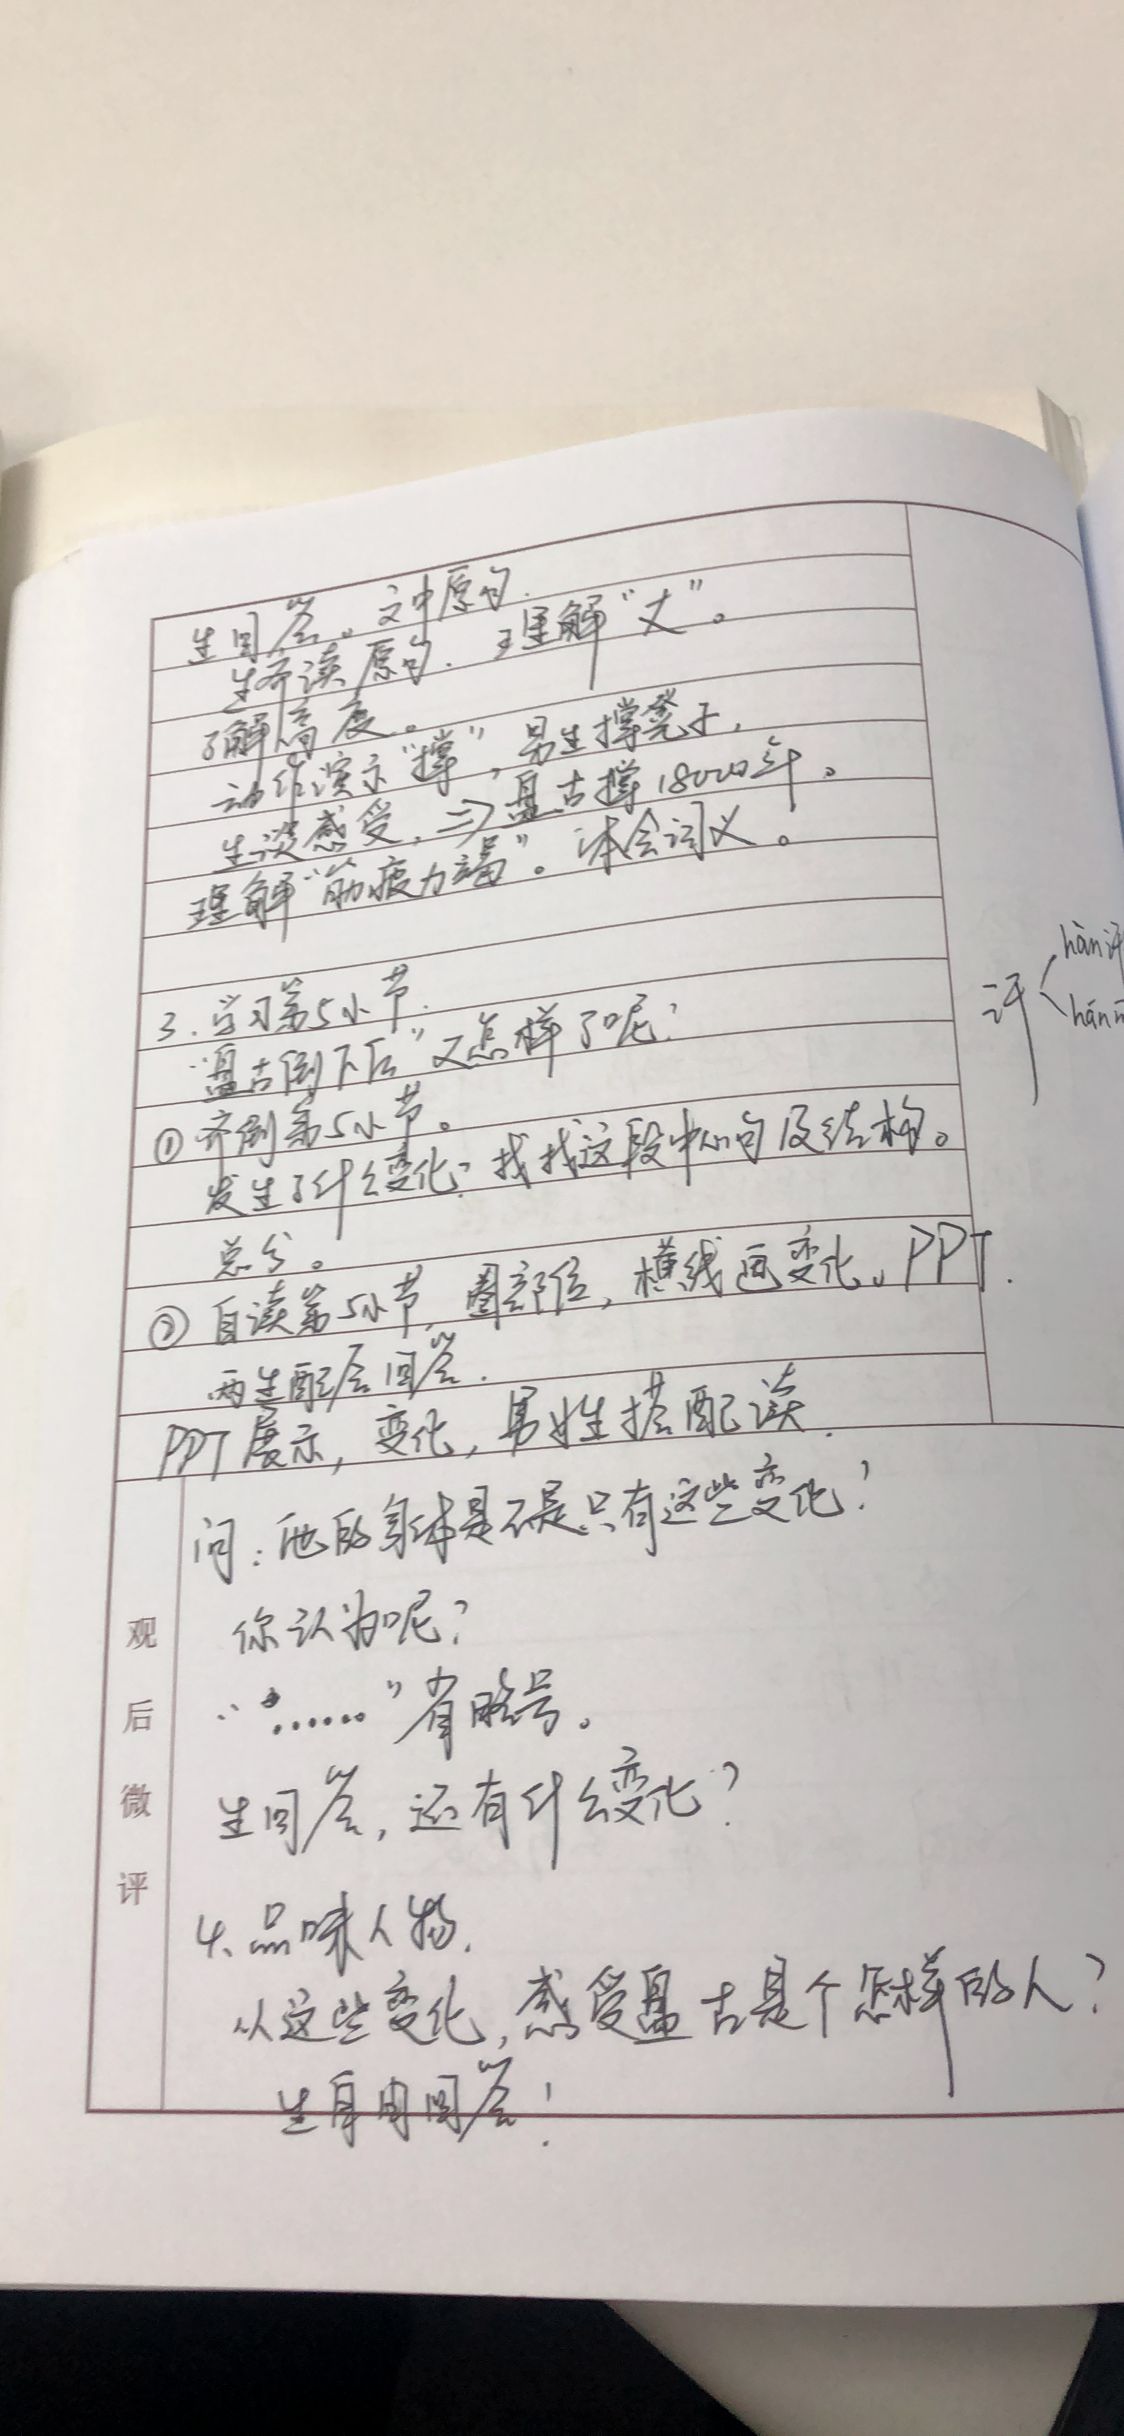 生回答。文中原句.
生齐读原句. 理解“丈”。
了解高度。
动作演示“撑”, 男生撑凳子,
生谈感受, => 盘古撑18000年。
理解“筋疲力竭”。体会词义。
3. 学习第5小节.
“盘古倒下后”又怎样了呢?
① 齐倒第5小节。
发生了什么变化? 找找这段中心句及结构。
总分。
② 自读第5小节, 圈部位, 横线画变化。PPT.
两生配合回答.
PPT展示, 变化, 男女生搭配读.
汗
hàn 汗
hán
问: 他的身体是不是只有这些变化?
你认为呢?
“......”省略号。
生回答, 还有什么变化?
4. 品味人物.
从这些变化, 感受盘古是个怎样的人?
生自由回答!
观后微评